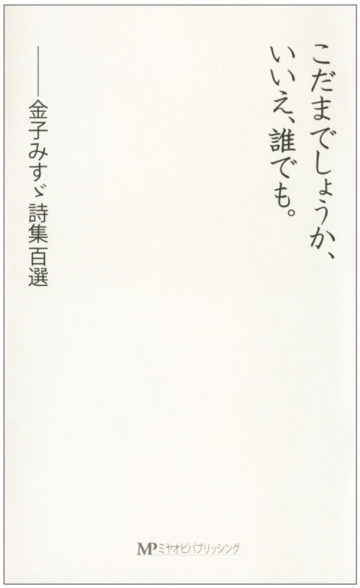 こだまでしょうか、
いいえ、誰でも。
──金子みすゞ詩集百選
MPミヤオビパブリッシング